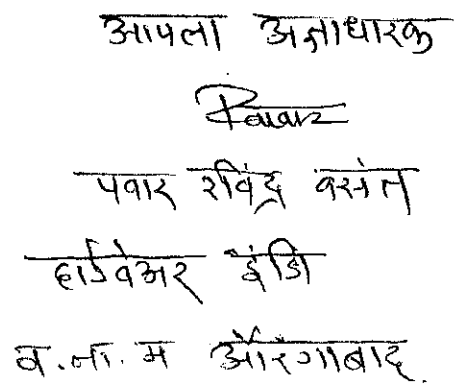 आपला अज्ञाधारक
Pawar
पवार रविंद्र वसंत
हार्डवेअर इंजि
व.ना.म औरंगाबाद.